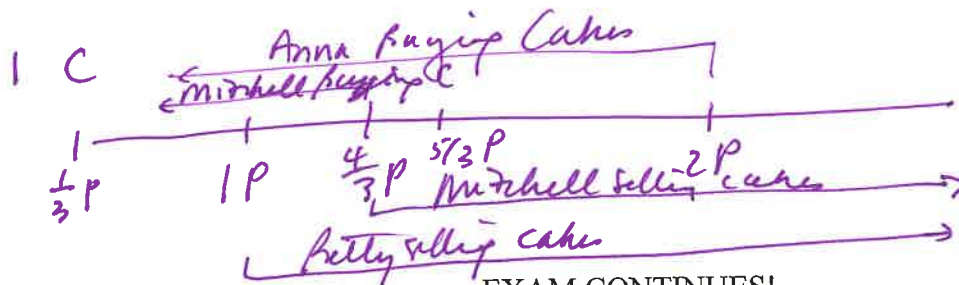 1 C
Anna Buying Cakes
Mitchell Buying C
1/3 P 1P 4/3 P 5/3 P 2P
Mitchell Selling cakes
Betty selling cakes
EXAM CONTINUES!